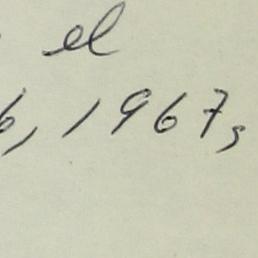 el
6, 1967,